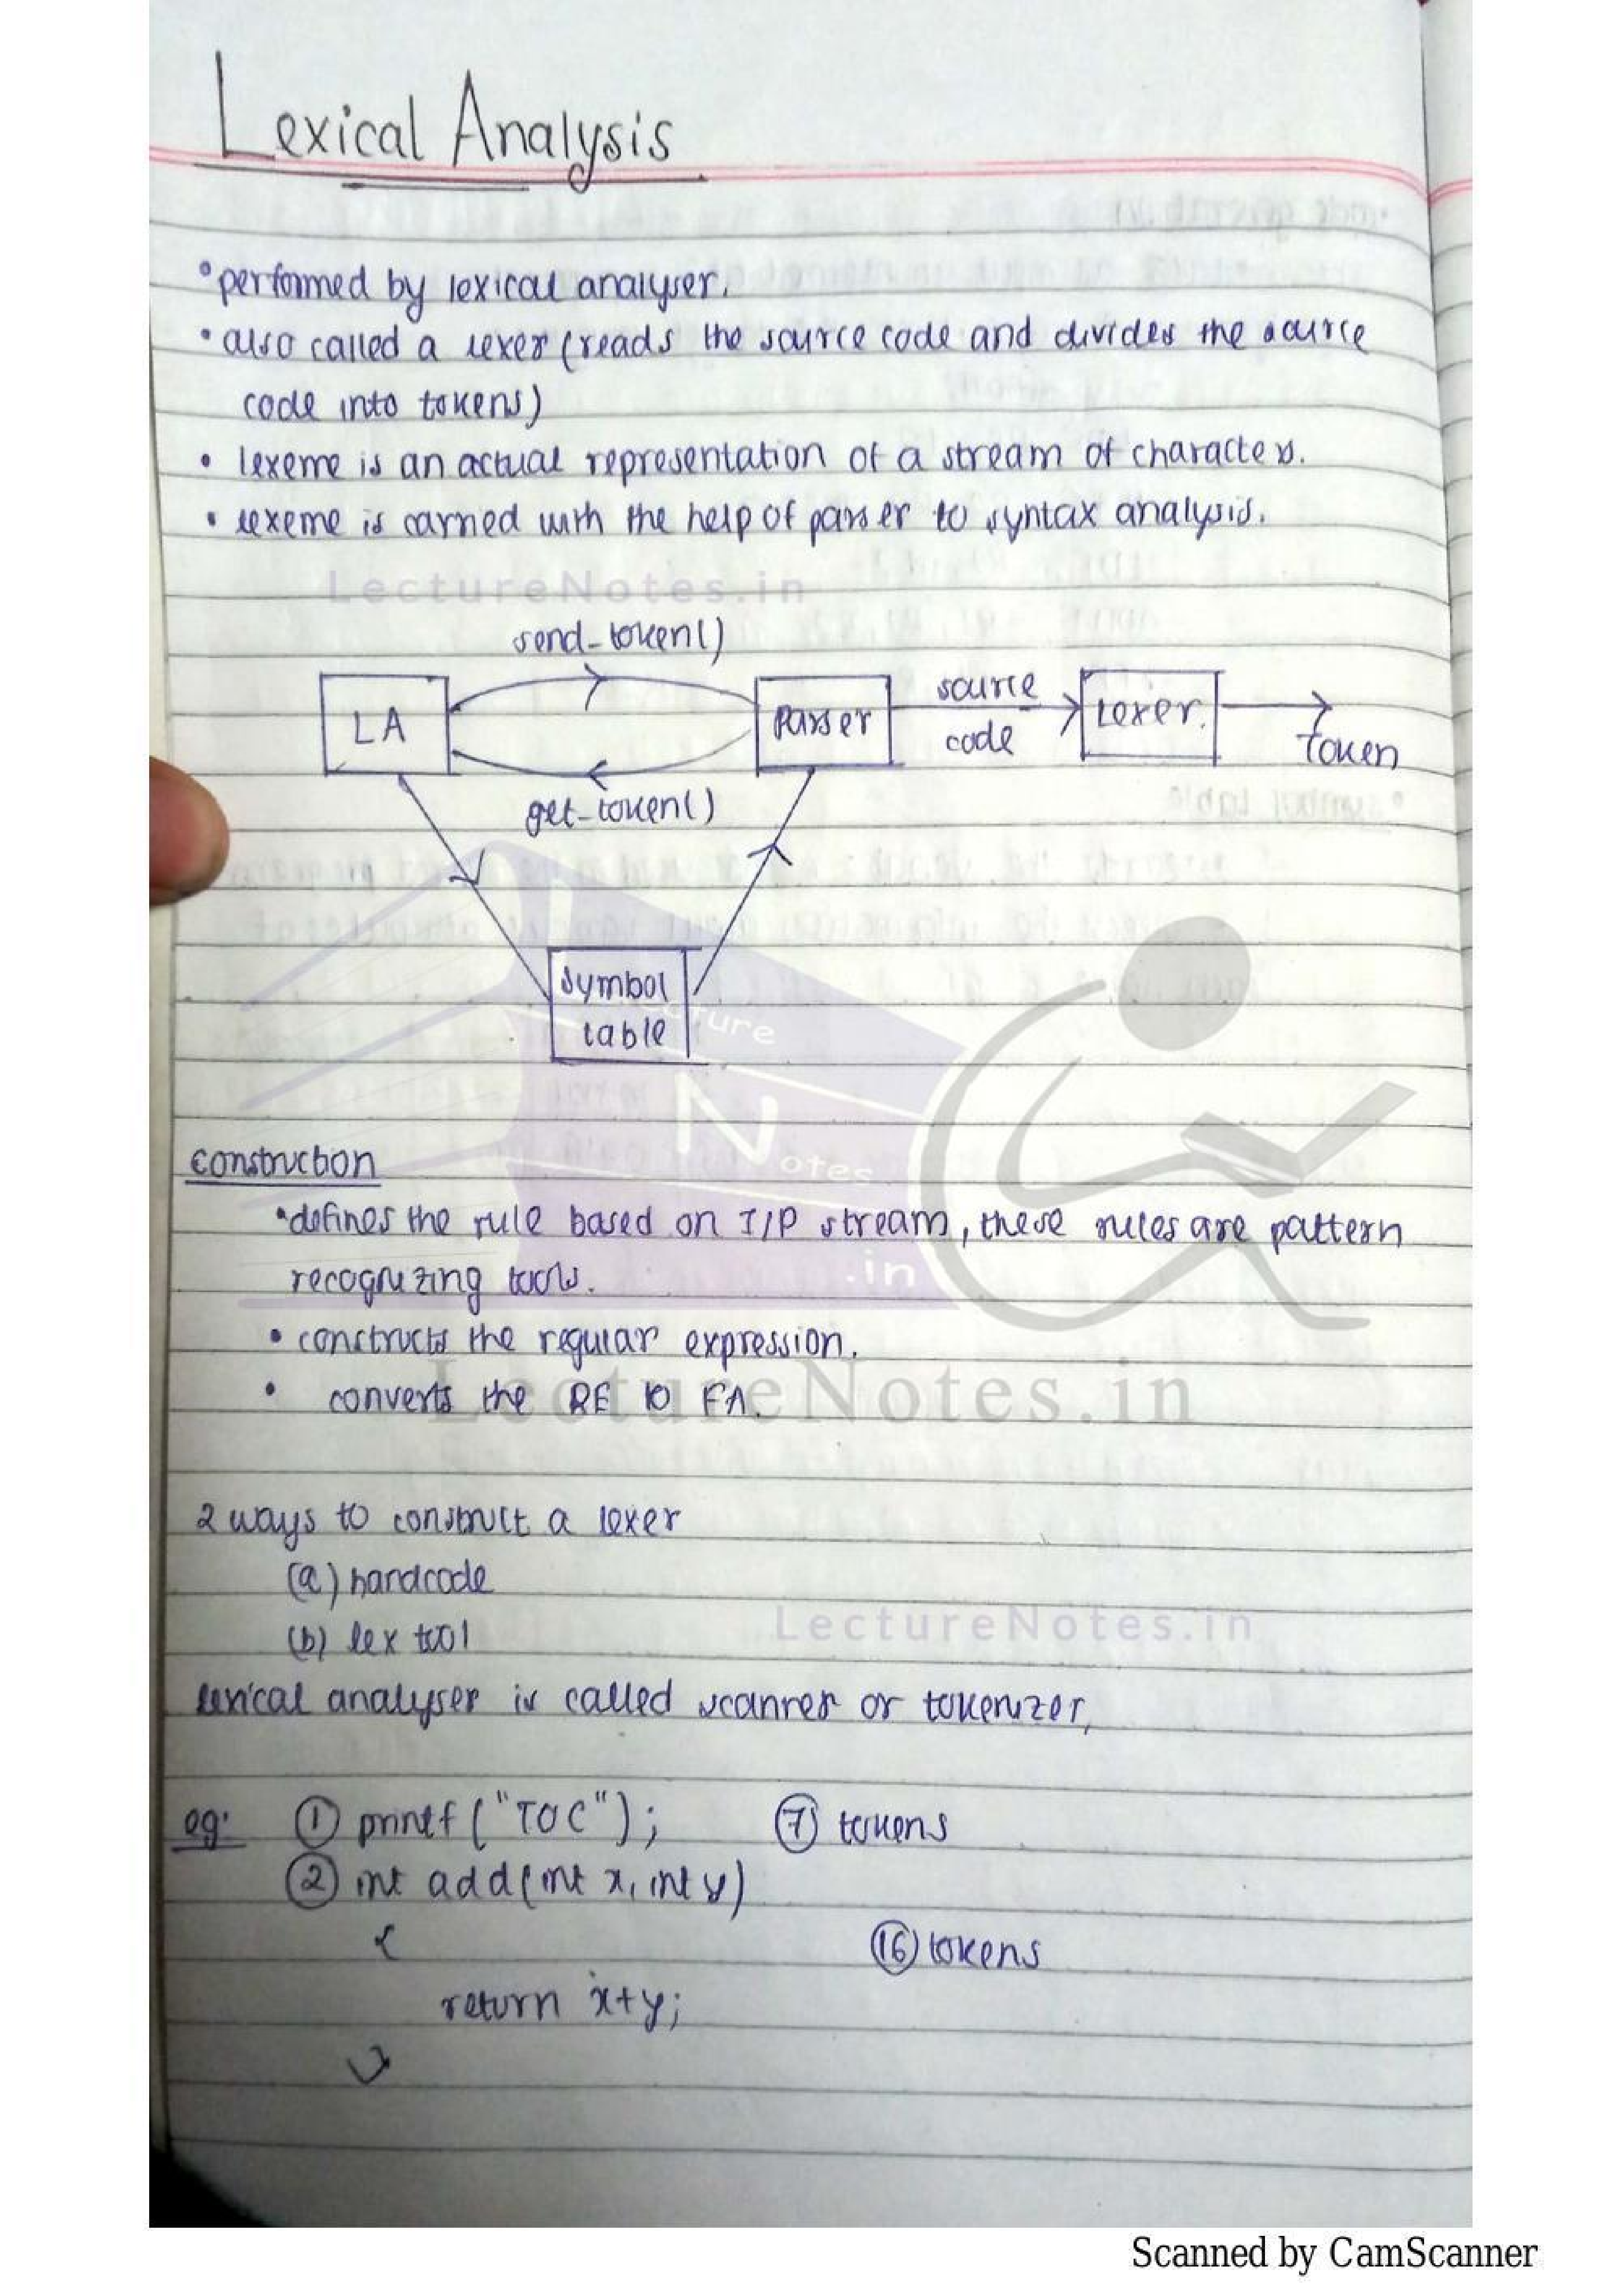 Lexical Analysis
• performed by lexical analyser.
• also called a lexer (reads the source code and divides the source
code into tokens)
• lexeme is an actual representation of a stream of characters.
• lexeme is carried with the help of parser to syntax analysis.
LectureNotes.in
send-token()
LA
parser
source
code
Lexer.
Token
get-token()
symbol
table
Lecture
Notes
.in
construction
• defines the rule based on I/P stream, these rules are pattern
recognizing tools.
• constructs the regular expression.
• converts the RE to FA.
LectureNotes.in
2 ways to construct a lexer
(a) hardcode
(b) lex tool
LectureNotes.in
lexical analyser is called scanner or tokenizer,
eg: ① printf ("TOC"); ⑦ tokens
② int add(int x, int y)
{
⑯ tokens
return x+y;
}
Scanned by CamScanner